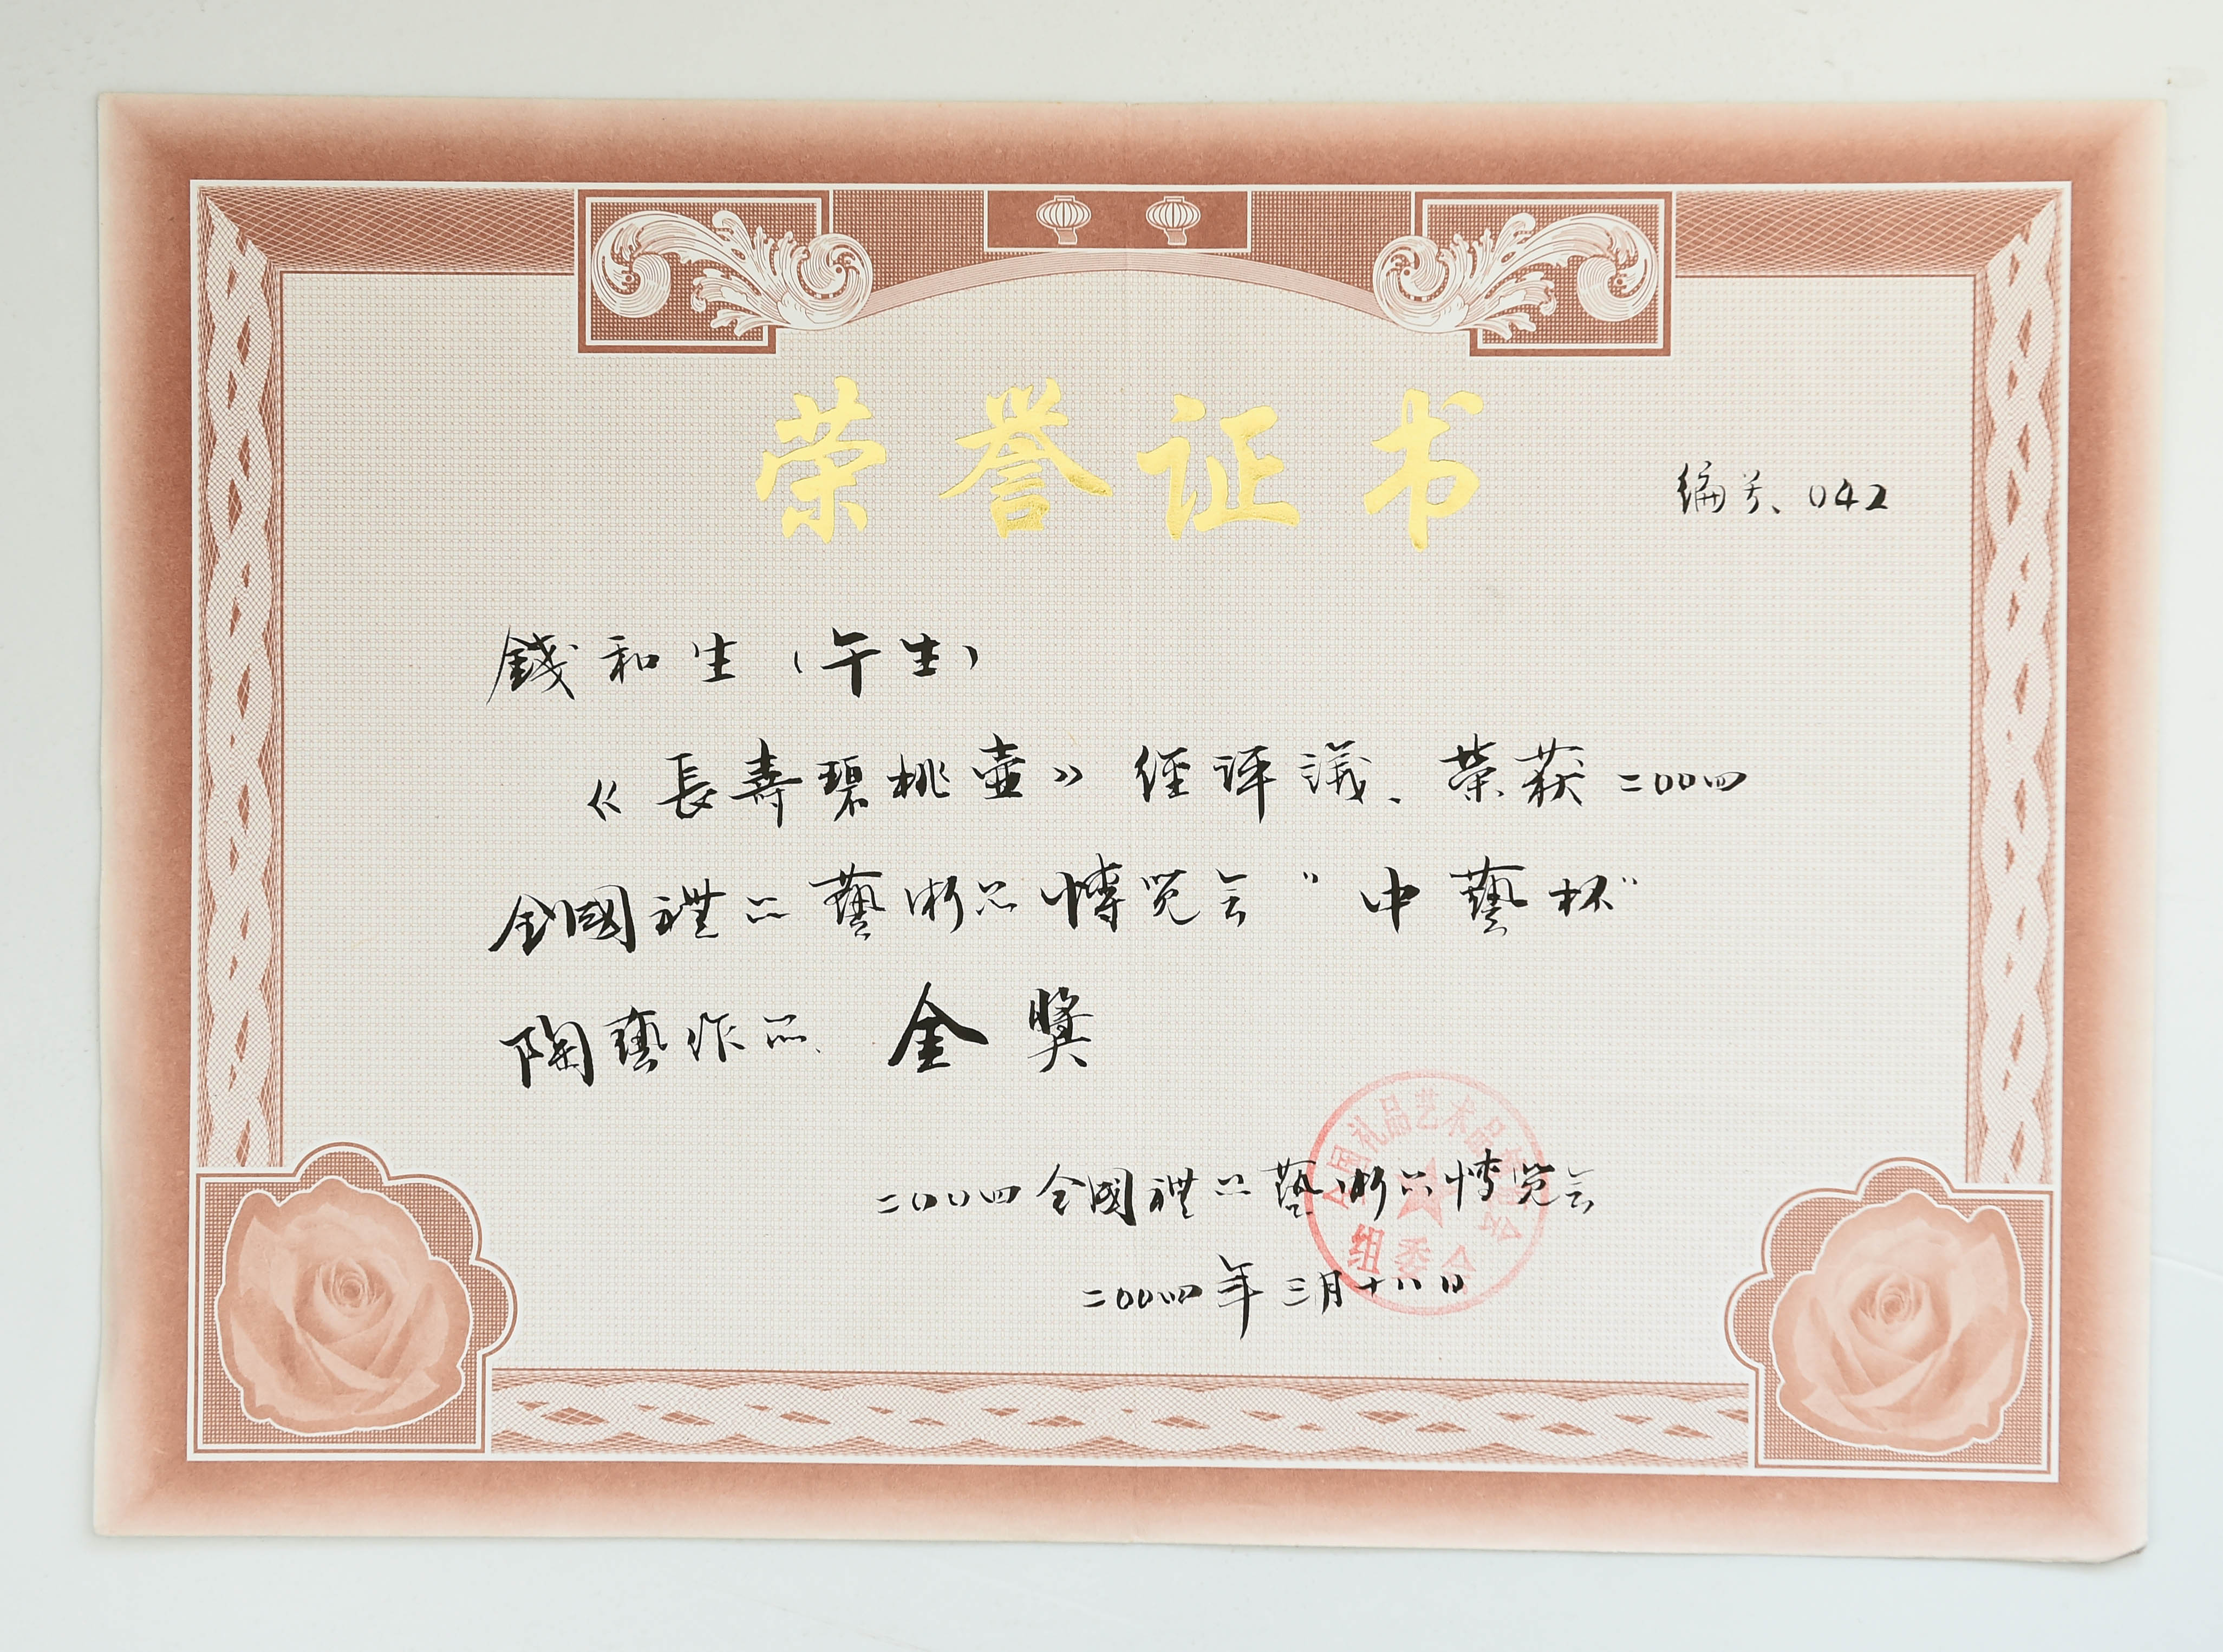 荣誉证书
编号、042
錢和生（午生）
《長壽碧桃壺》經评議、荣获二00四
全國禮品藝術品博览会"中藝杯"
陶藝作品、金獎
全国礼品艺术品博览会
组委会
二00四全國禮品藝術品博览会
二00四年三月十八日